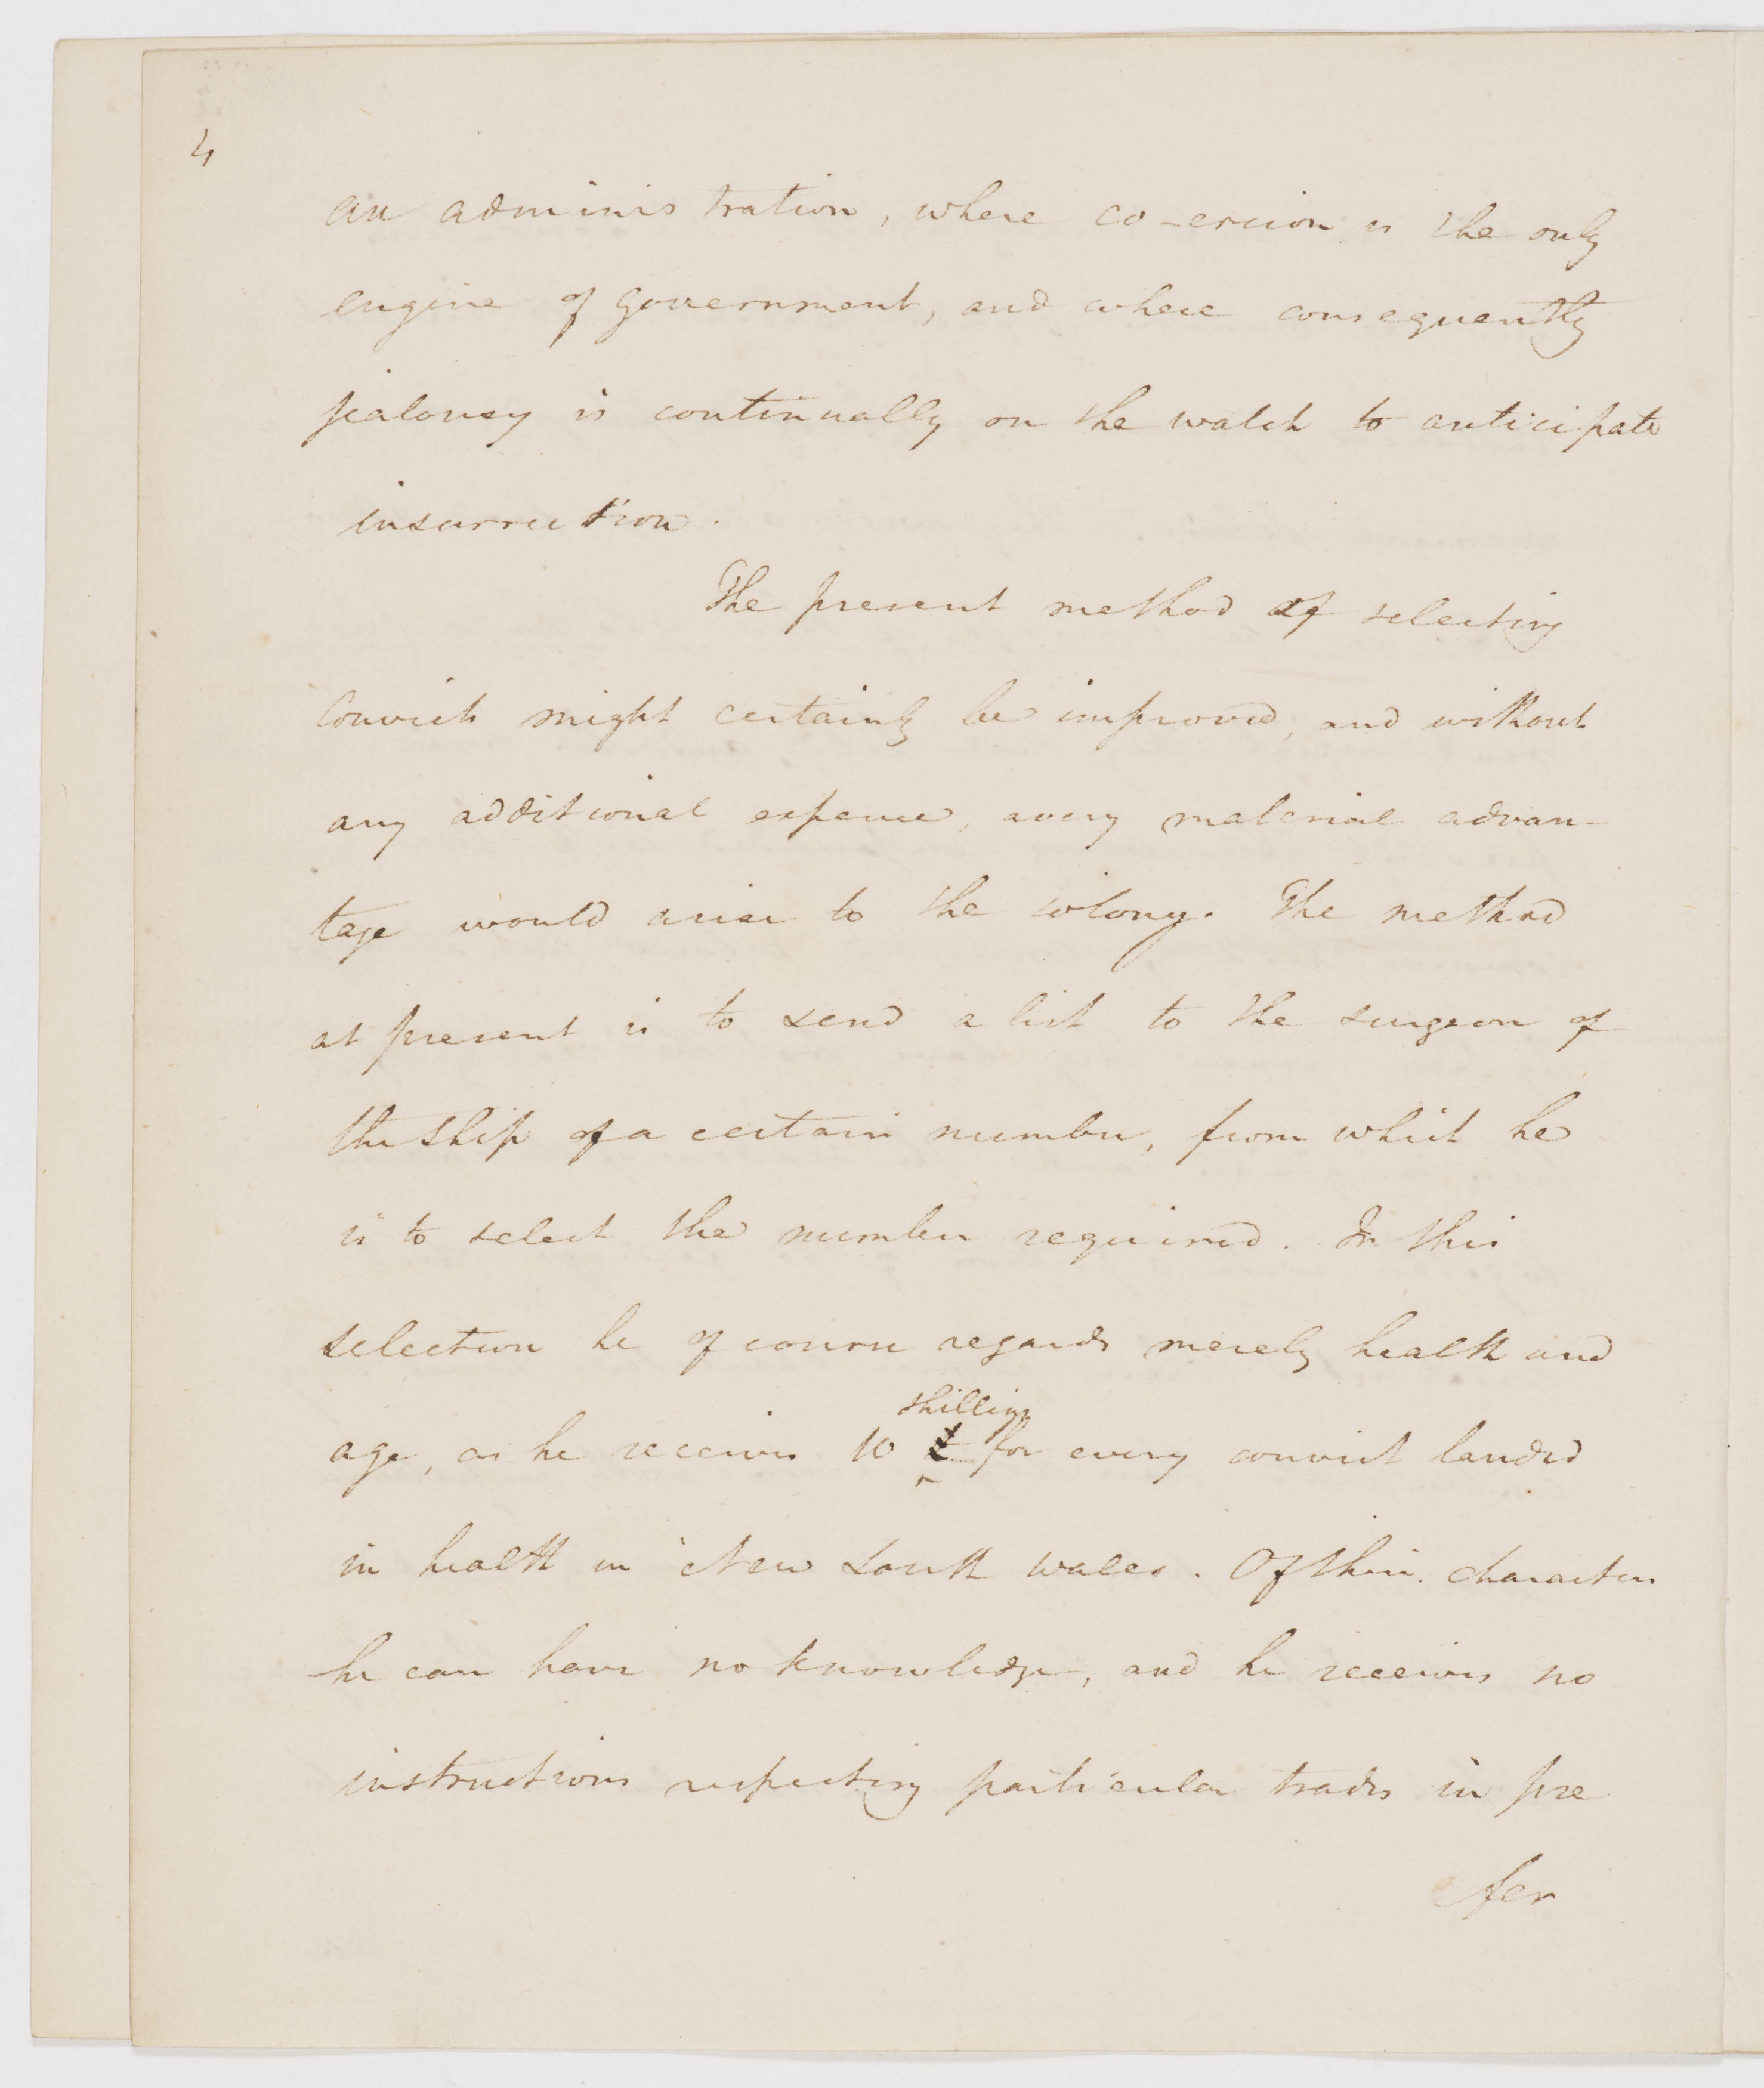 4
an administration, where co-ercion is the only
engine of government, and where consequently
jealousy is continually on the watch to anticipate
insurrection.
The present method of selecting
convicts might certainly be improved, and without
any additional expence, a very material advan-
tage would arise to the colony. The method
at present is to send a list to the surgeon of
the ship of a certain number, from which he
is to select the number required. In this
selection he of course regards merely health and
shillings
age, as he receives 10 £ for every convict landed
in health in New South Wales. Of their characters
he can have no knowledge, and he receives no
instructions respecting particular trades in pre
fer